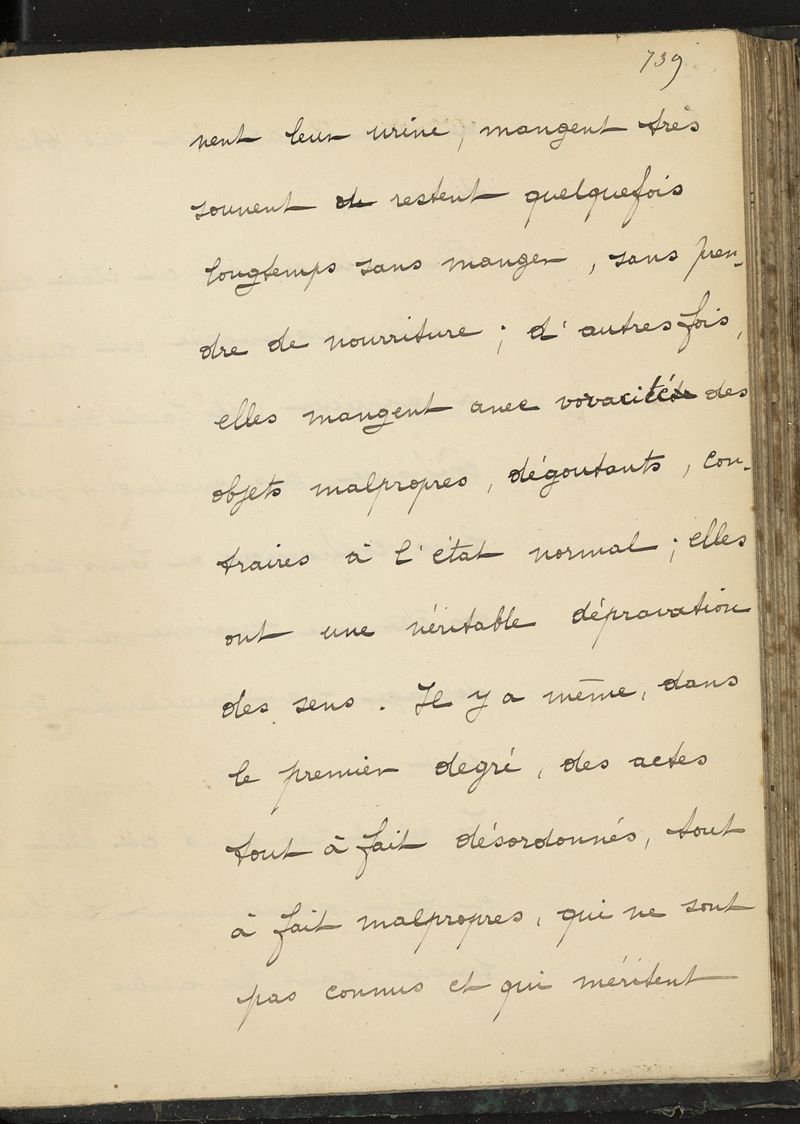 739
vent leur urine, mangent très
souvent de restent quelquefois
longtemps sans manger, sans pren-
dre de nourriture ; d'autres fois,
elles mangent avec voracité des
objets malpropres, dégoutants, con-
traires à l'état normal ; elles
ont une véritable dépravation
des sens. Il y a même, dans
le premier degré, des actes
tout à fait désordonnés, tout
à fait malpropres, qui ne sont
pas connus et qui méritent